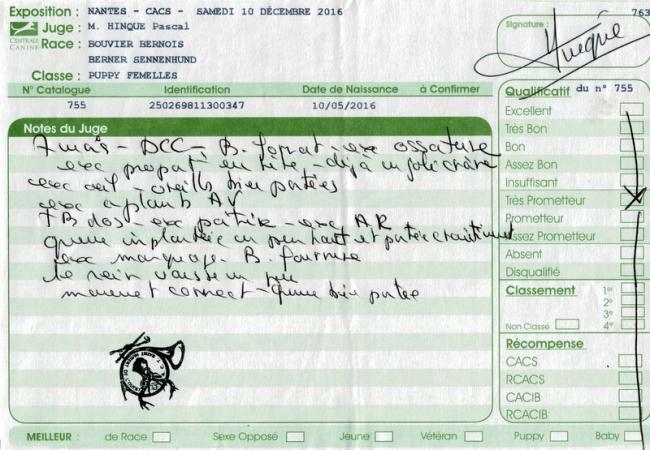 Exposition : NANTES - CACS - SAMEDI 10 DÉCEMBRE 2016
763
Juge : M. HINQUE Pascal
CENTRALE CANINE
Race : BOUVIER BERNOIS
BERNER SENNENHUND
Classe : PUPPY FEMELLES
Signature :
Hinque
N° Catalogue Identification Date de Naissance à Confirmer
755 250269811300347 10/05/2016
Qualificatif du n° 755
Excellent
Très Bon
Bon
Assez Bon
Insuffisant
Très Prometteur
Prometteur
Assez Prometteur
Absent
Disqualifié
Classement 1er
2e
3e
Non Classé 4e
Récompense
CACS
RCACS
CACIB
RCACIB
Notes du Juge
7 mois - DCC - B. format - exc ossature
exc en tête - déjà un joli crâne
exc œil - oreilles bien portées
exc aplomb AV
TB dos - exc poitrine - exc AR
queue implantée un peu haut et portée
exc marquage - B. fourrure
le rein un peu
correct - queue bien portée
MEILLEUR : de Race Sexe Opposé Jeune Vétéran Puppy Baby